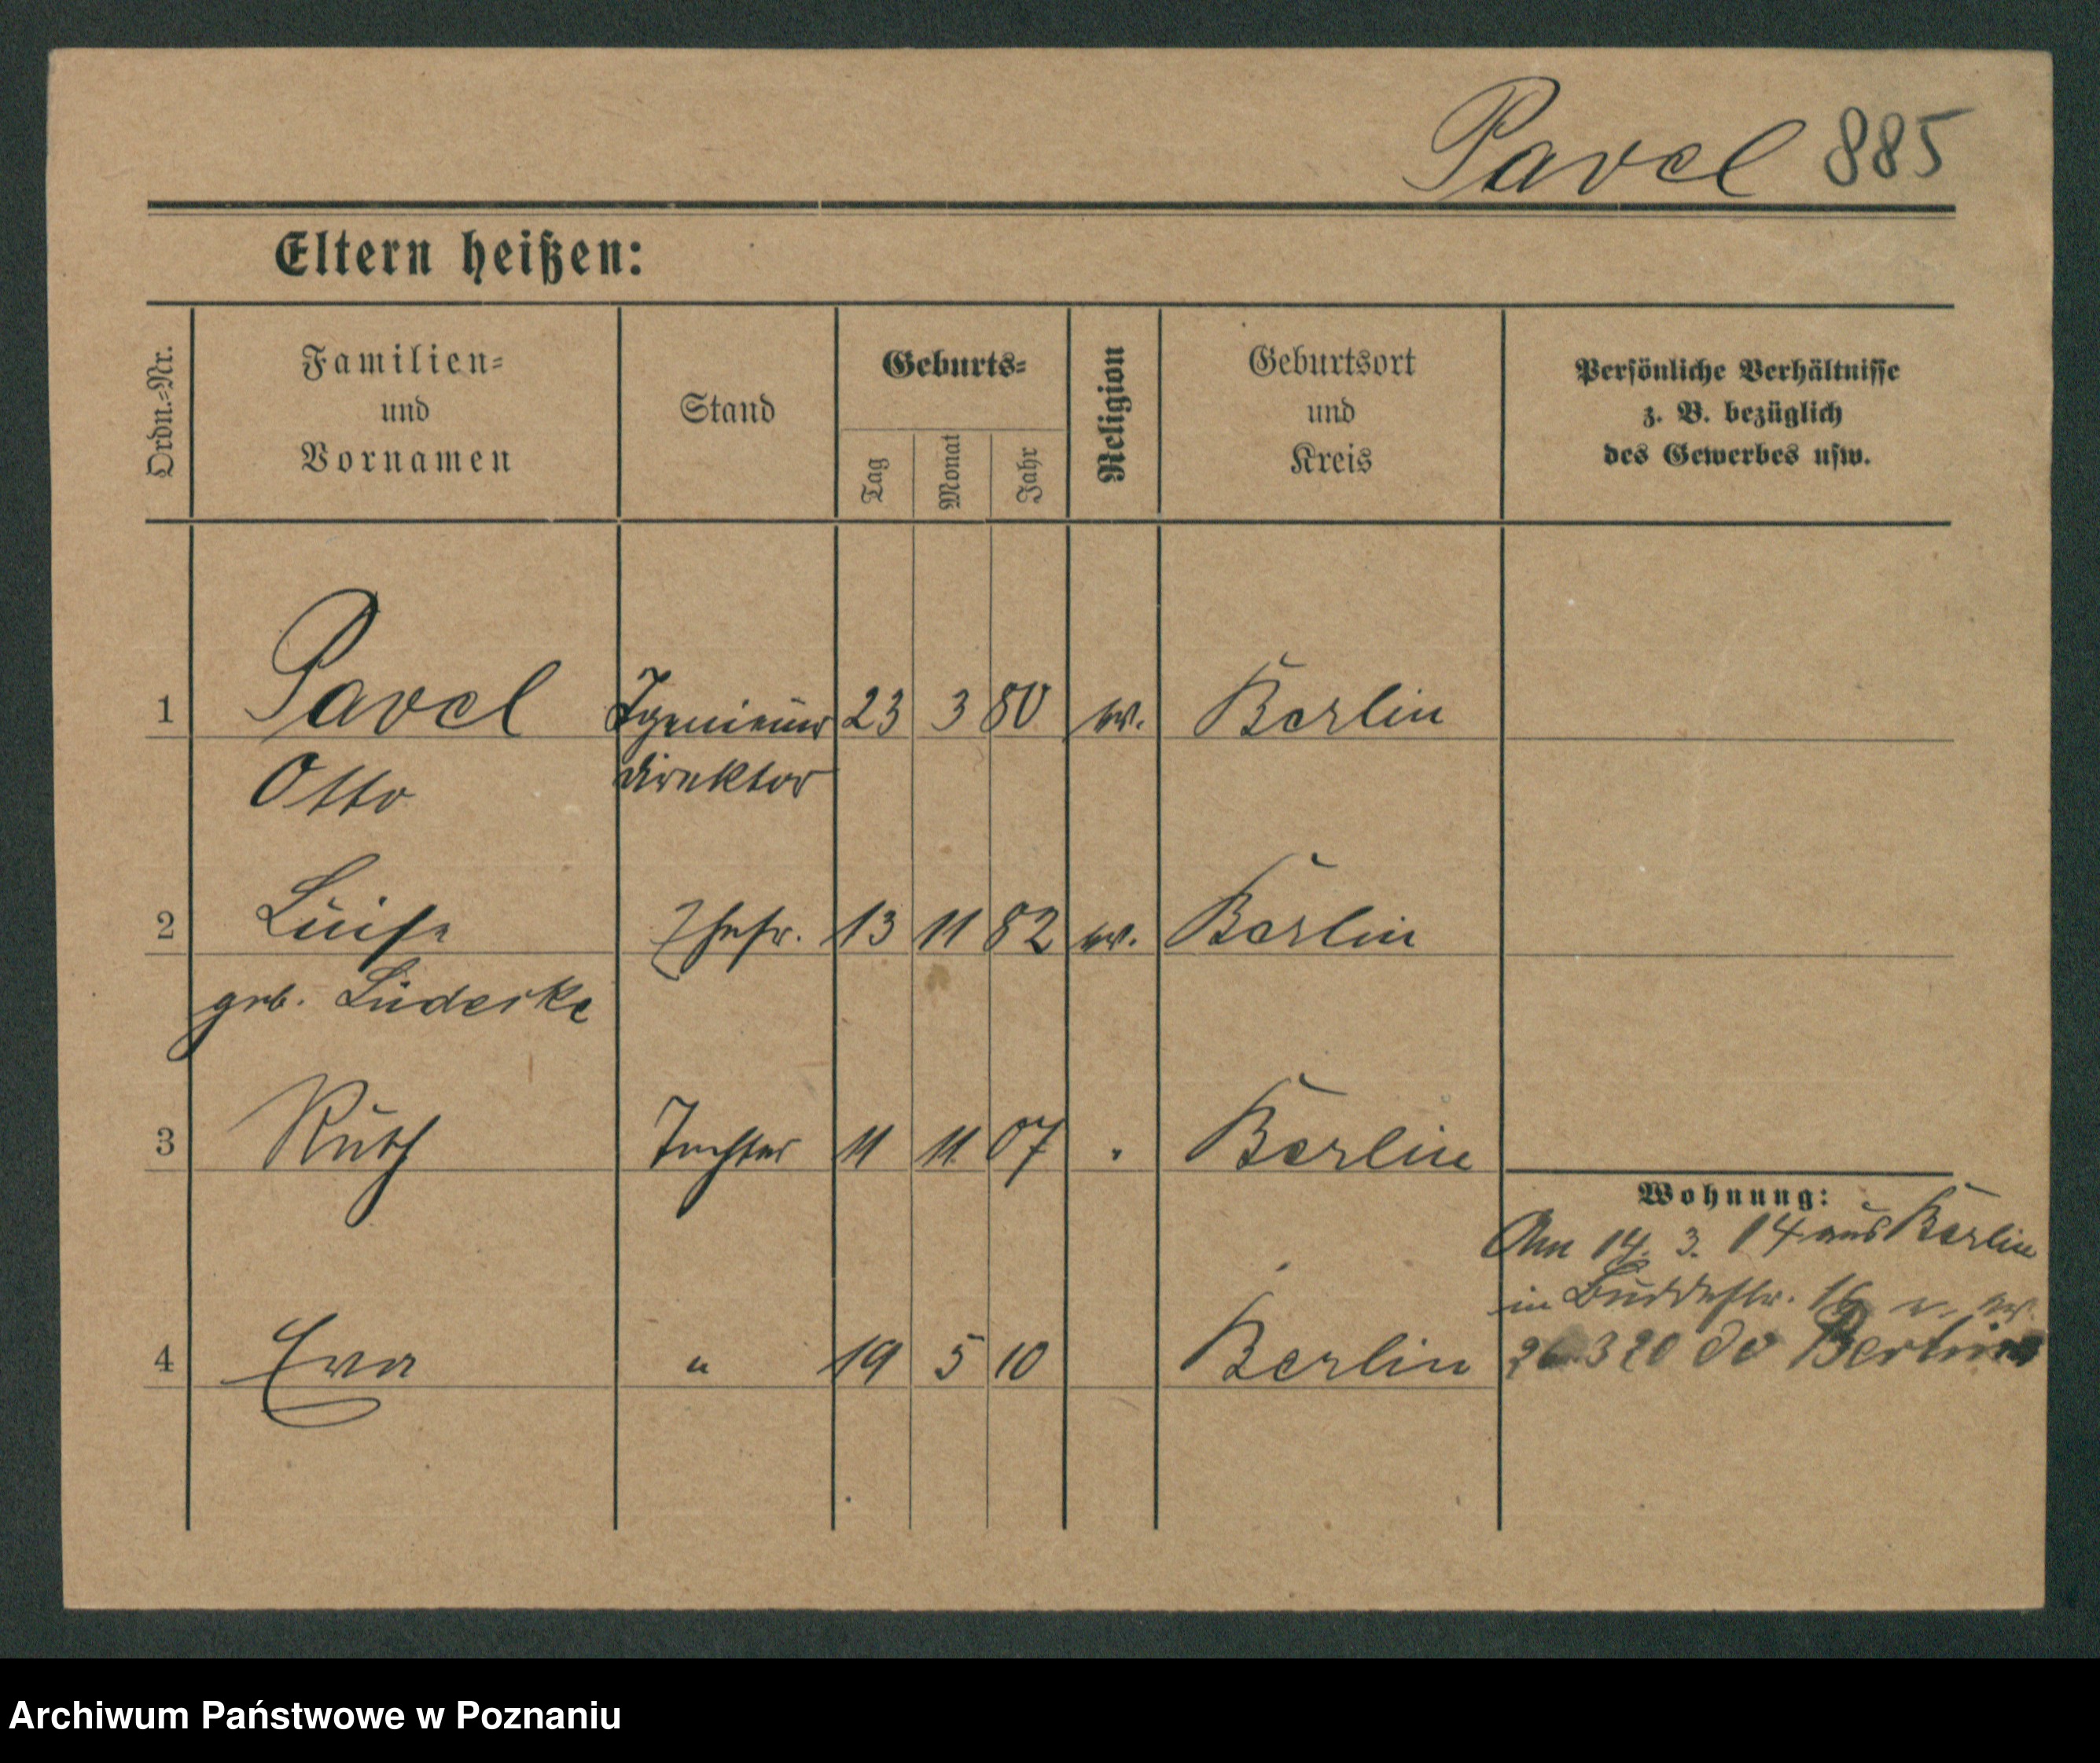 Pavel 885
Eltern heißen:
Ordn.-Nr. Familien= und Vornamen Stand Geburts= Tag Monat Jahr Religion Geburtsort und Kreis Persönliche Verhältnisse z. B. bezüglich des Gewerbes usw.
1 Pavel Igenieur 23 3 80 ev. Berlin
Otto direktor
2 Luise Ehefr. 13 11 82 ev. Berlin
geb.
3 Ruth Tochter 11 11 07 " Berlin
Wohnung:
Am 14. 3. 14 aus Berlin
in Buddestr. 16
4 Eva " 19 5 10 Berlin
26 3 20 do Berlin
Archiwum Państwowe w Poznaniu